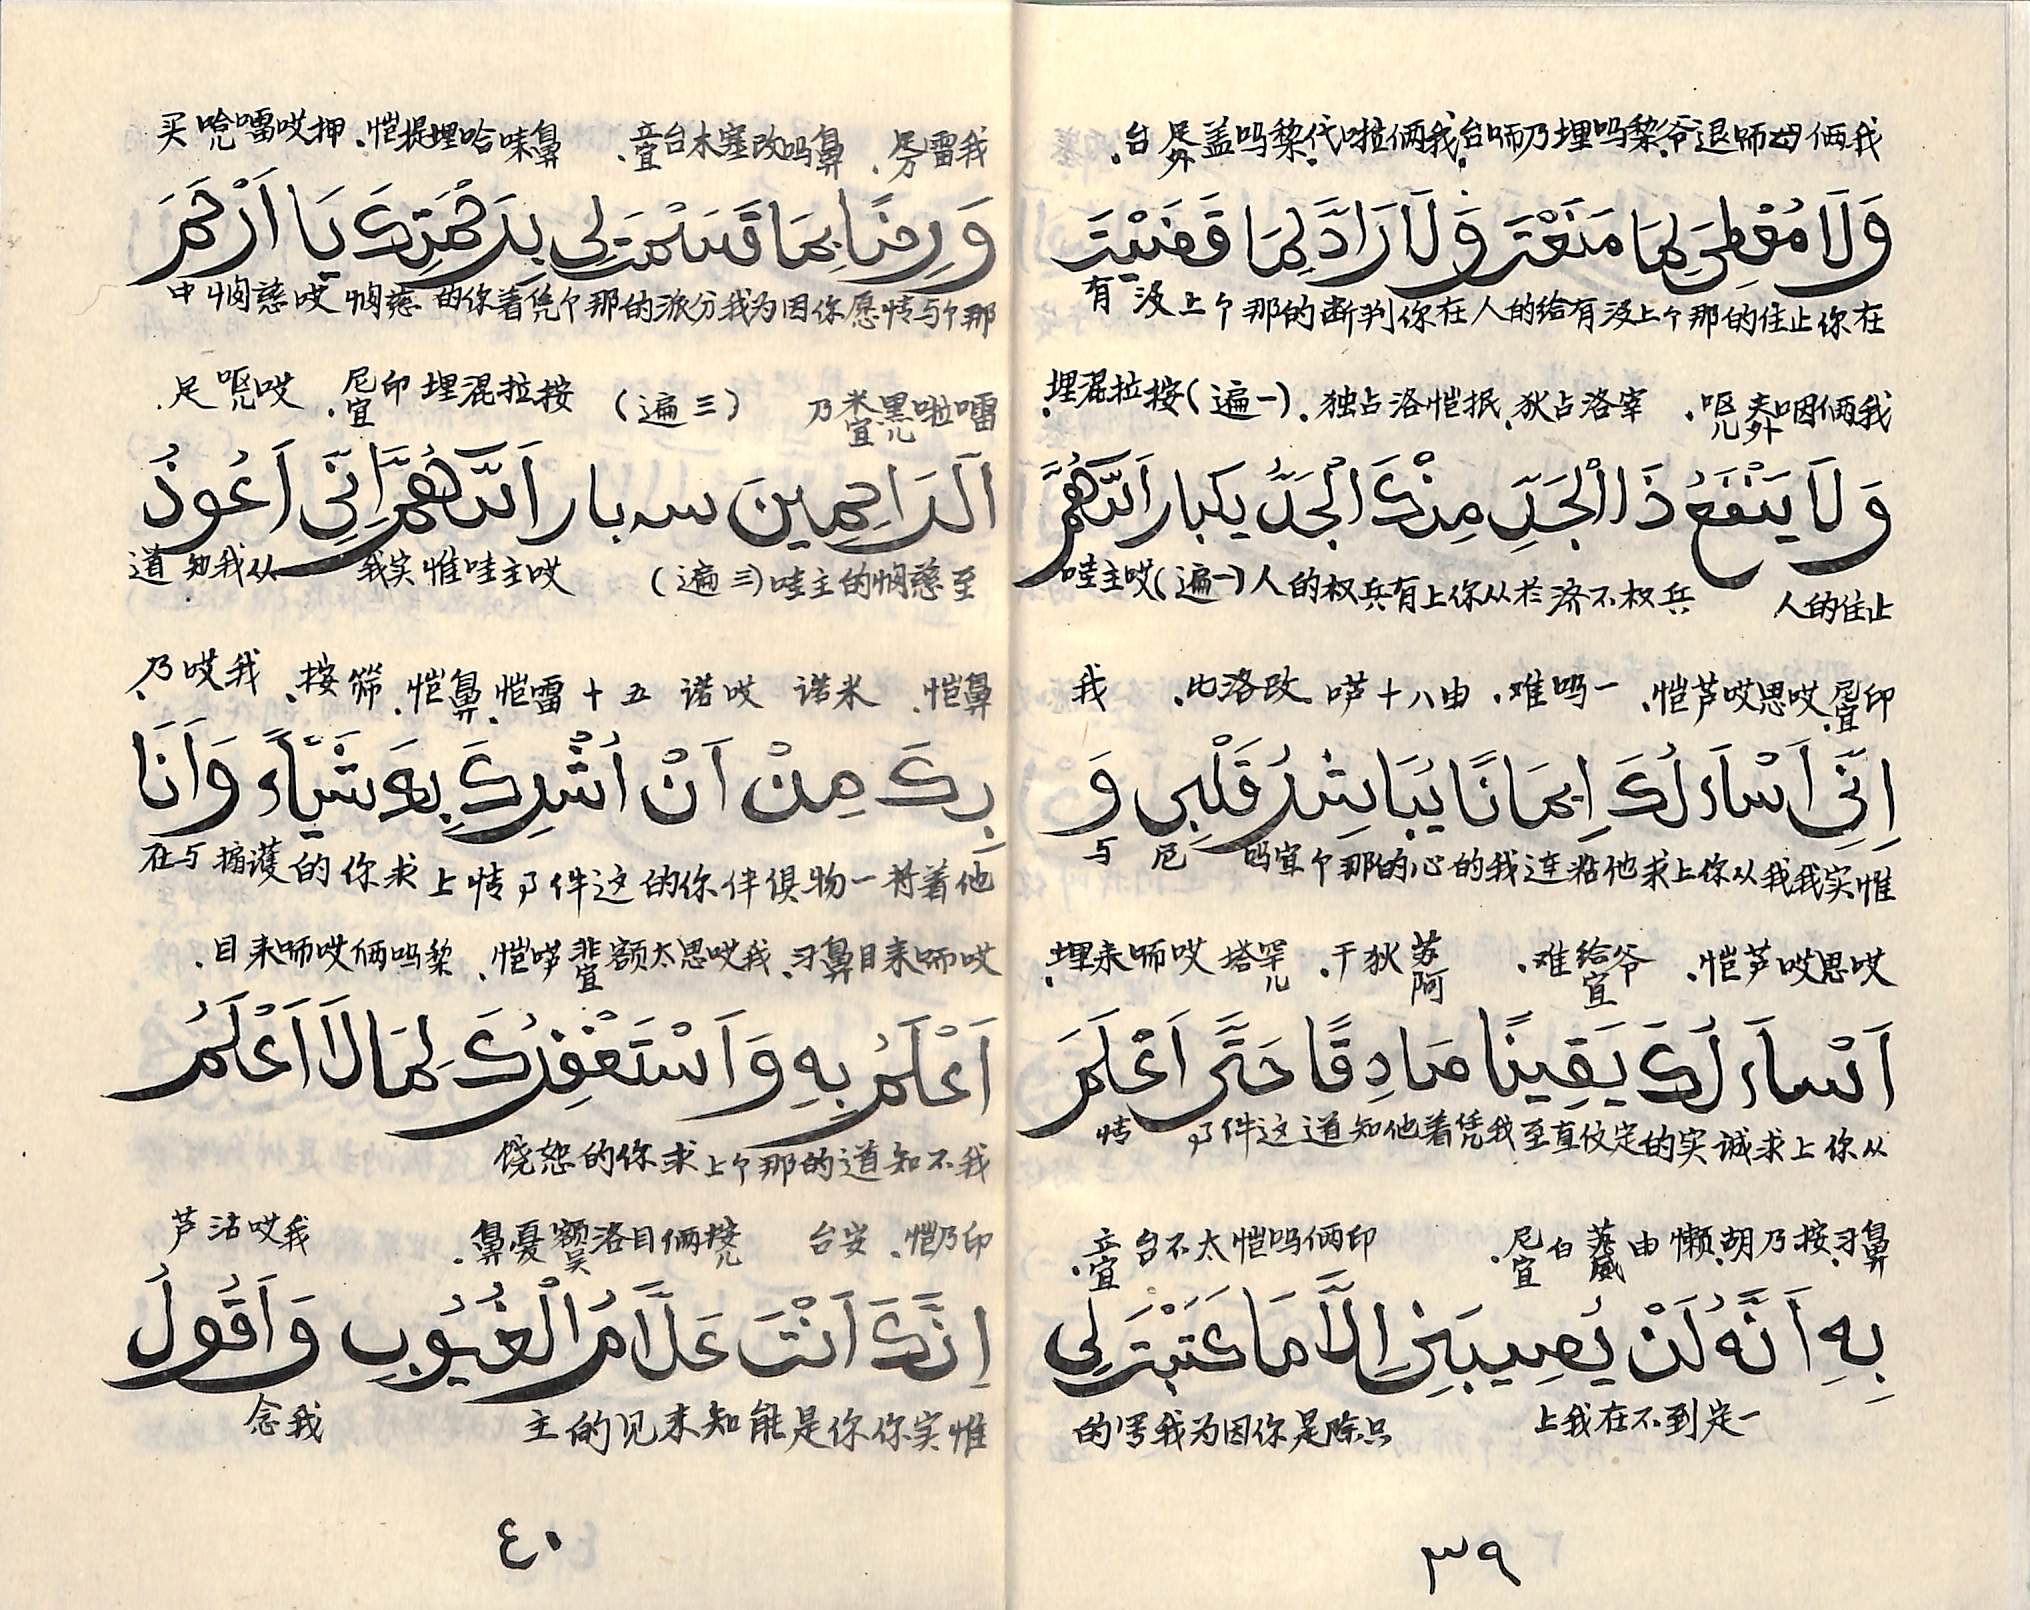 我俩母师退爷黎吗埋乃师台我俩啦代黎吗盖足外台
وَلَا مُعْطِىَ لِمَا مَنَعْتَ وَلَا رَادَّ لِمَا قَضَيْتَ
在你止住的那个上没有给的人在你判断的那个上没有
我俩因夫外呕儿 宰洛占狄 抿恺洛占独（一遍）按拉混埋
وَلَا يَنْفَعُ ذَا الْجَدِّ مِنْكَ الْجَدُّ يكبار اَللّٰهُمَّ
止住的人 兵权不济于从你上有兵权的人（一遍）哎主哇
印尼宜哎思哎芦恺 一吗难 由八十啰 改洛比 我
اِنِّى اَسْاَلُكَ اِيمَانًا يُبَاشِرُ قَلْبِى وَ
惟实我我从你上求他粘连我的心的那个宜吗厄与
哎思哎芦恺 爷给宜难 苏阿狄干 罕儿塔哎师来埋
اَسْاَلُكَ يَقِينًا صَادِقًا حَتَّى اَعْلَمَ
从你上求诚实的定位直至我凭着他知道这件事情
鼻习按乃胡懒由苏威白尼宜 印俩吗恺太不台立宜
بِهِ اَنَّهُ لَنْ يُصِيبَنِى اِلَّا مَا كَتَبْتَ لِى
一定到不在我上 只除是你因为我写的
٣٩
我雷足分 鼻吗改塞木台立宜 鼻味哈埋提恺押哎嚅呛儿买
وَرِضًا بِمَا قَسَمْتَ لِى بِرَحْمَتِكَ يَا اَرْحَمَ
那个与情愿你因为我分派的那个凭着你的慈悯哎慈悯中
嚅啦黑儿米宜乃（三遍）按拉混埋印尼宜哎呕儿足
الرَّاحِمِينَ سه بار اَللّٰهُمَّ اِنِّى اَعُوذُ
至慈悯的主哇（三遍）哎主哇惟实我从我知道
鼻恺 米诺 哎诺 五十雷恺鼻恺 筛按 我哎乃
بِكَ مِنْ اَنْ اُشْرِكَ بِهِ شَيْاءً وَاَنَا
他着将一物俱伴你的这件事情上求你的護掮与在
哎师来目鼻习我哎思太额非宜啰恺黎吗俩哎师来目
اَعْلَمُ بِهِ وَاَسْتَغْفِرُكَ لِمَا لَا اَعْلَمُ
我不知道的那个上求你的恕饶
印乃恺安台 按儿俩目洛额吴憂鼻 我哎沽芦
اِنَّكَ اَنْتَ عَلَّامُ الْغُيُوبِ وَاَقُولُ
惟实你你是能知未见的主 我念
٤٠